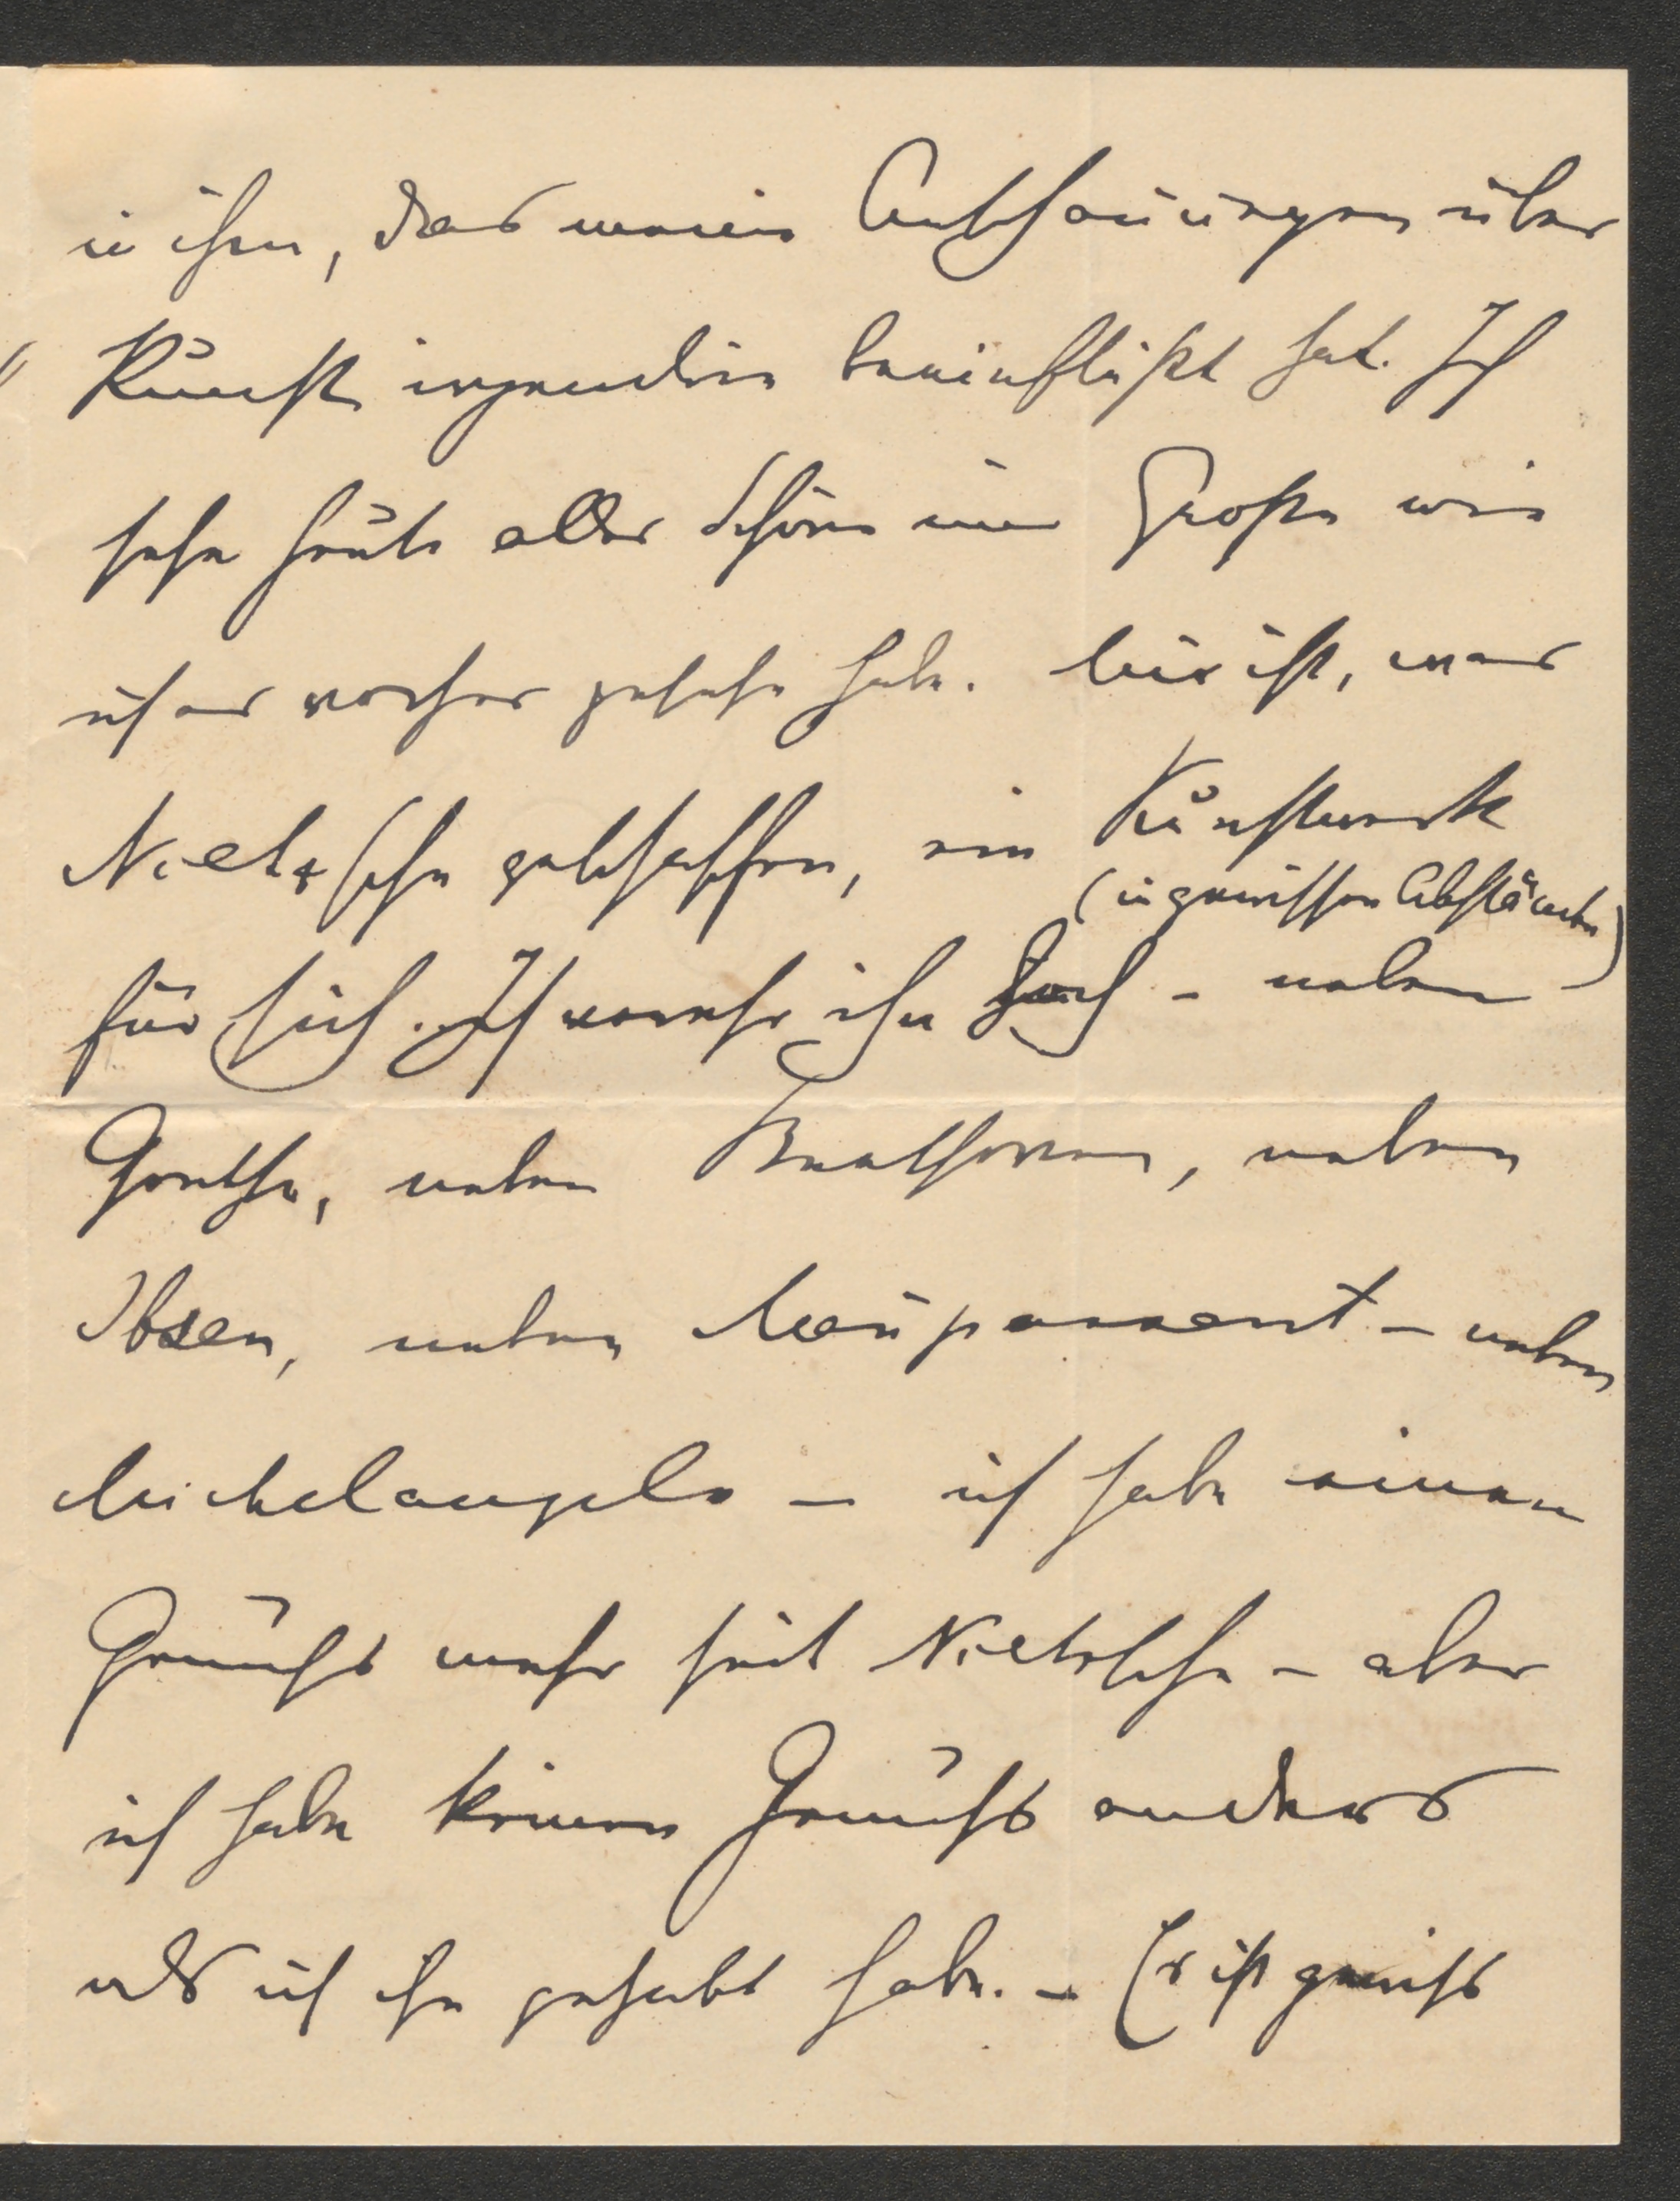 in ihm, das meine Anschauungen über
Kunst irgendwie beeinflußt hat. Ich
sehe heute alles Schöne und Große wie
ich es vorher gesehe habe. Mir ist, was
Nietzsche geschaffen, ein Kunstwerk
für sich. Ich verehre ihn hoch - neben
(in gewissen Abständen)
Goethe, neben Beethoven, neben
Ibsen, neben Maupassant - neben
Michelangelo - ich habe einen
Genuß mehr seit Nietzsche - aber
ich habe keinen Genuß anders
als ich ihn gehabt habe. - Er ist gewiß